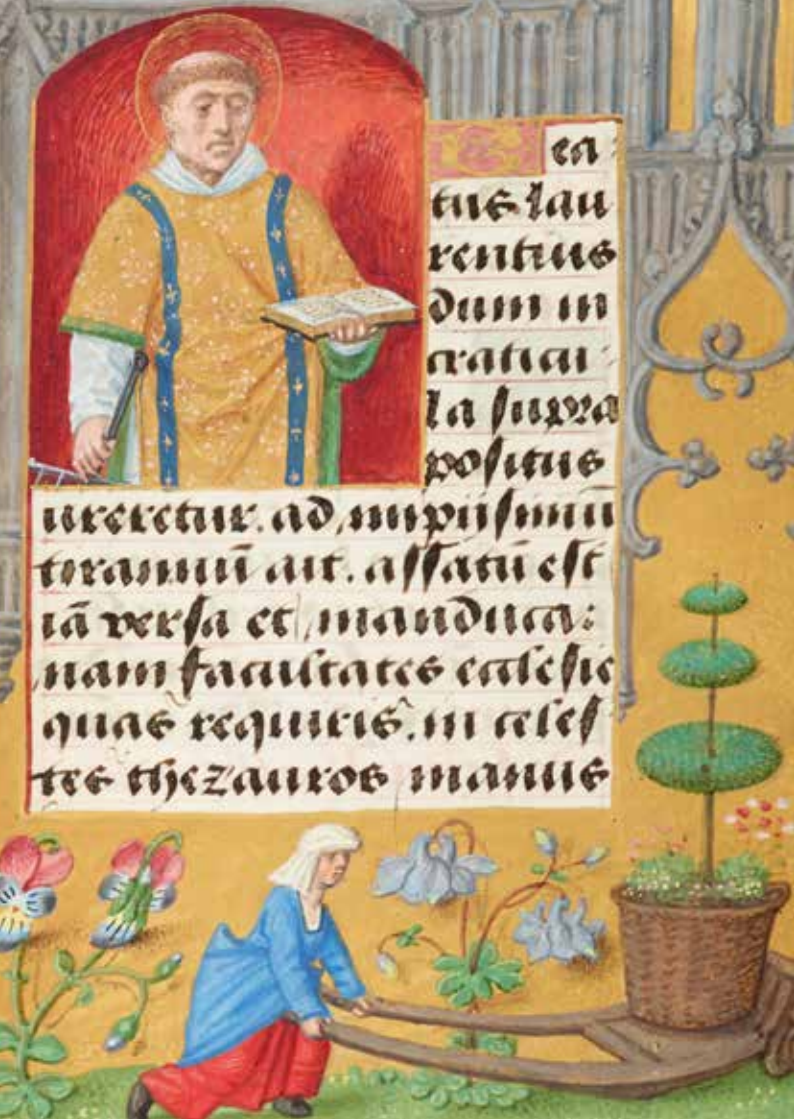 ea
tus lau
rentius
dum in
craticu
la supra
positus
ureretur. ad impiissimū
tirannū ait. assatū est
iā versa et manduca:
nam facultates ecclesie
quas requiris. in celes
tes thezauros manus